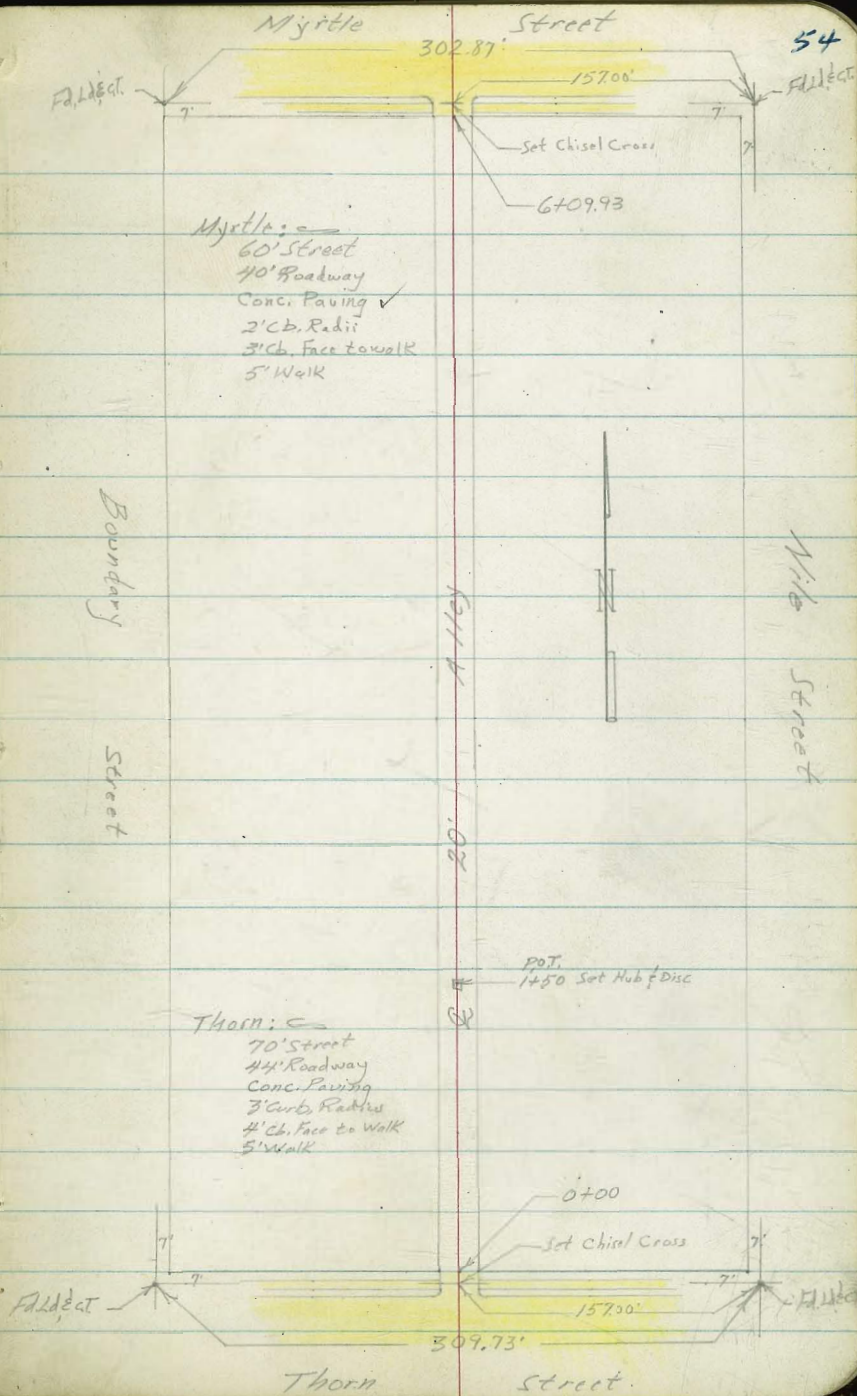 Myrtle Street
54
302.87'
157.00'
Fd. Ld. & GT.
Fd. Ld. & GT.
7'
7'
7'
Set Chisel Cross
6+09.93
Myrtle:
60' Street
40' Roadway
Conc. Paving ✓
2' Cb. Radii
3' Cb. Face to walk
5' Walk
N
Boundary Street
Alley
20'
Nile Street
P.O.T.
1+50 Set Hub & Disc
Thorn:
70' Street
44' Roadway
Conc. Paving
3' Curb. Radius
4' Cb. Face to Walk
5' Walk
0+00
Set Chisel Cross
7'
7'
7'
7'
Fd. Ld. & GT.
Fd. Ld. &
157.00'
309.73'
Thorn Street.